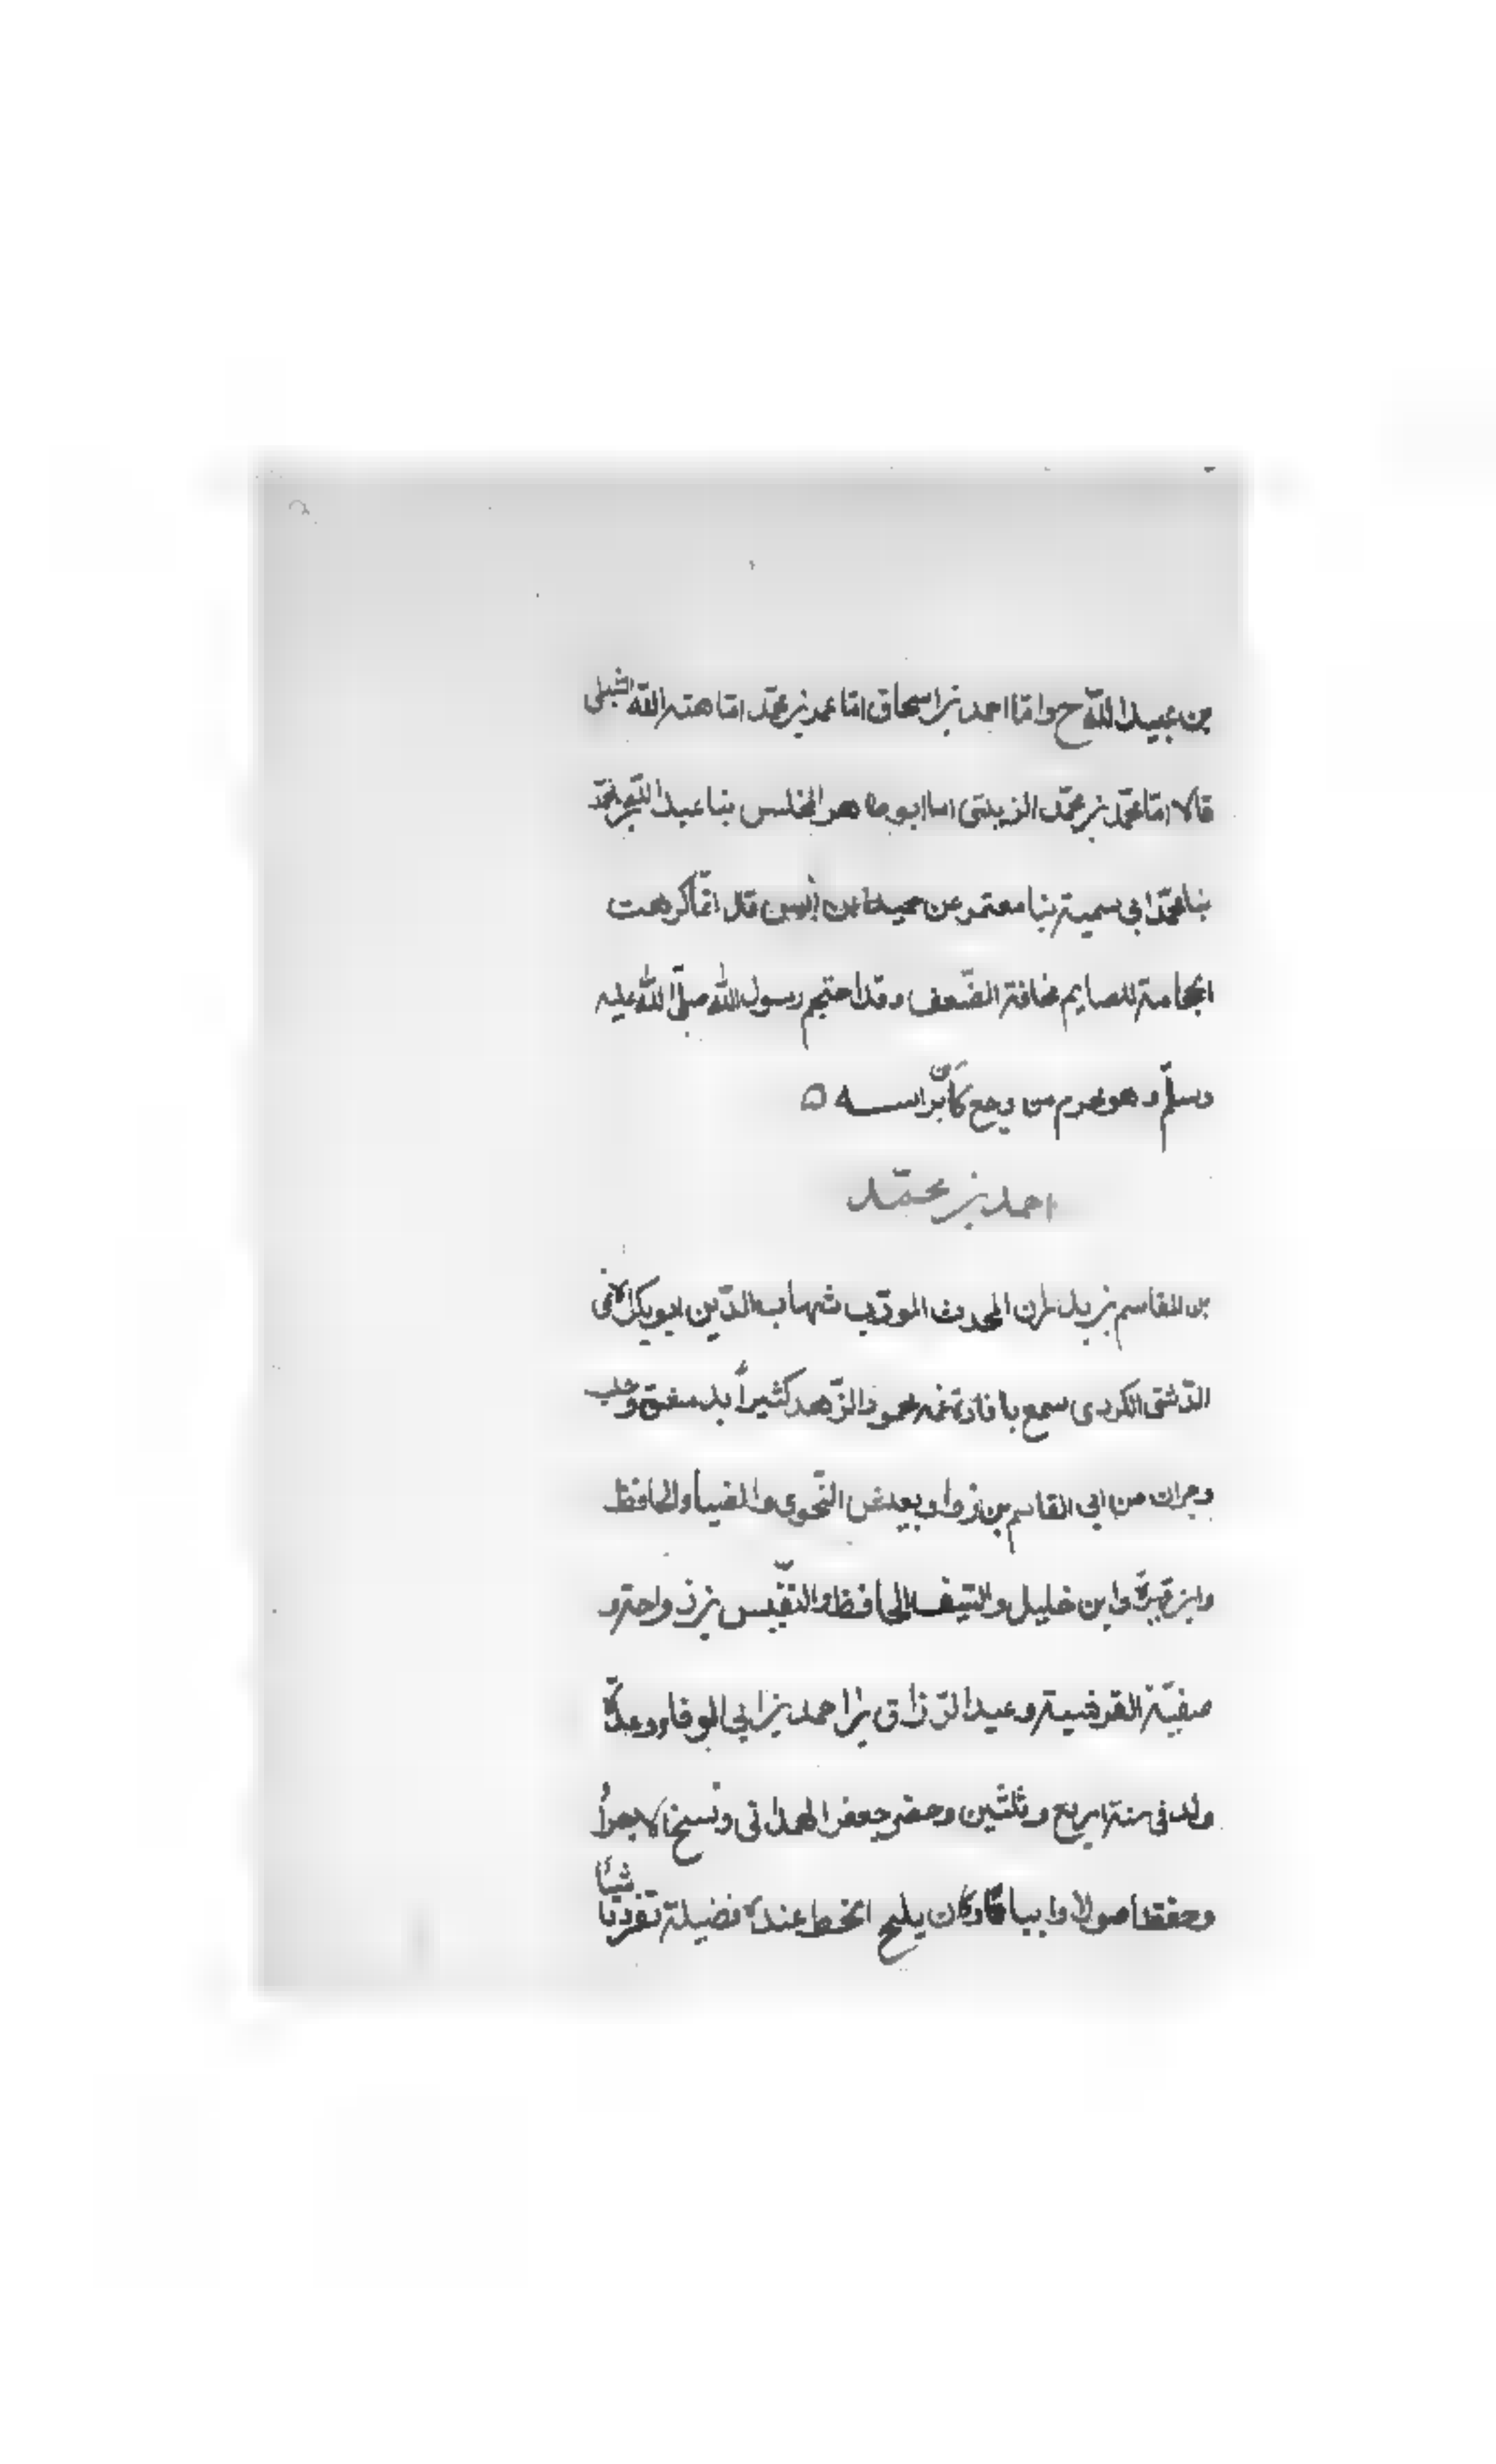 بن عبيد الله ح وانا احمد بن اسحاق انا محمد بن محمد انا هبة الله الشبلى
قالا انا محمد بن محمد الزينبى انا ابو طاهر المخلص بنا عبد الله بن محمد
بنا محمد ابى سمينة بنا معتمر عن حميد عن انس قال انما كرهت
الحجامة للصايم مخافة الضعف وقد احتجم رسول الله صلى الله عليه
وسلم وهو محرم من وجع كان براسه
احمد بن محمد
بن القاسم بن بدران المحدث المودب شهاب الدين ابو بكر
الدشتى الكردى سمع بافادة محمود الزهد كثيراً بدمشق وحلب
وحران من ابى القاسم بن رواد ويعيش النحوى والضيا والحافظ
وابن قميرة وابن خليل والحافظ والنفيس بن رواحة و
صفية القرشية وعبد الرزاق بن احمد بن ابى الوفا وعدة
ولد فى سنة اربع وثلثين وحضر جعفر الهمدانى ونسخ الاجراً
وحفظ اصولا وكان يليح الخط عنده فضيلة تفرد